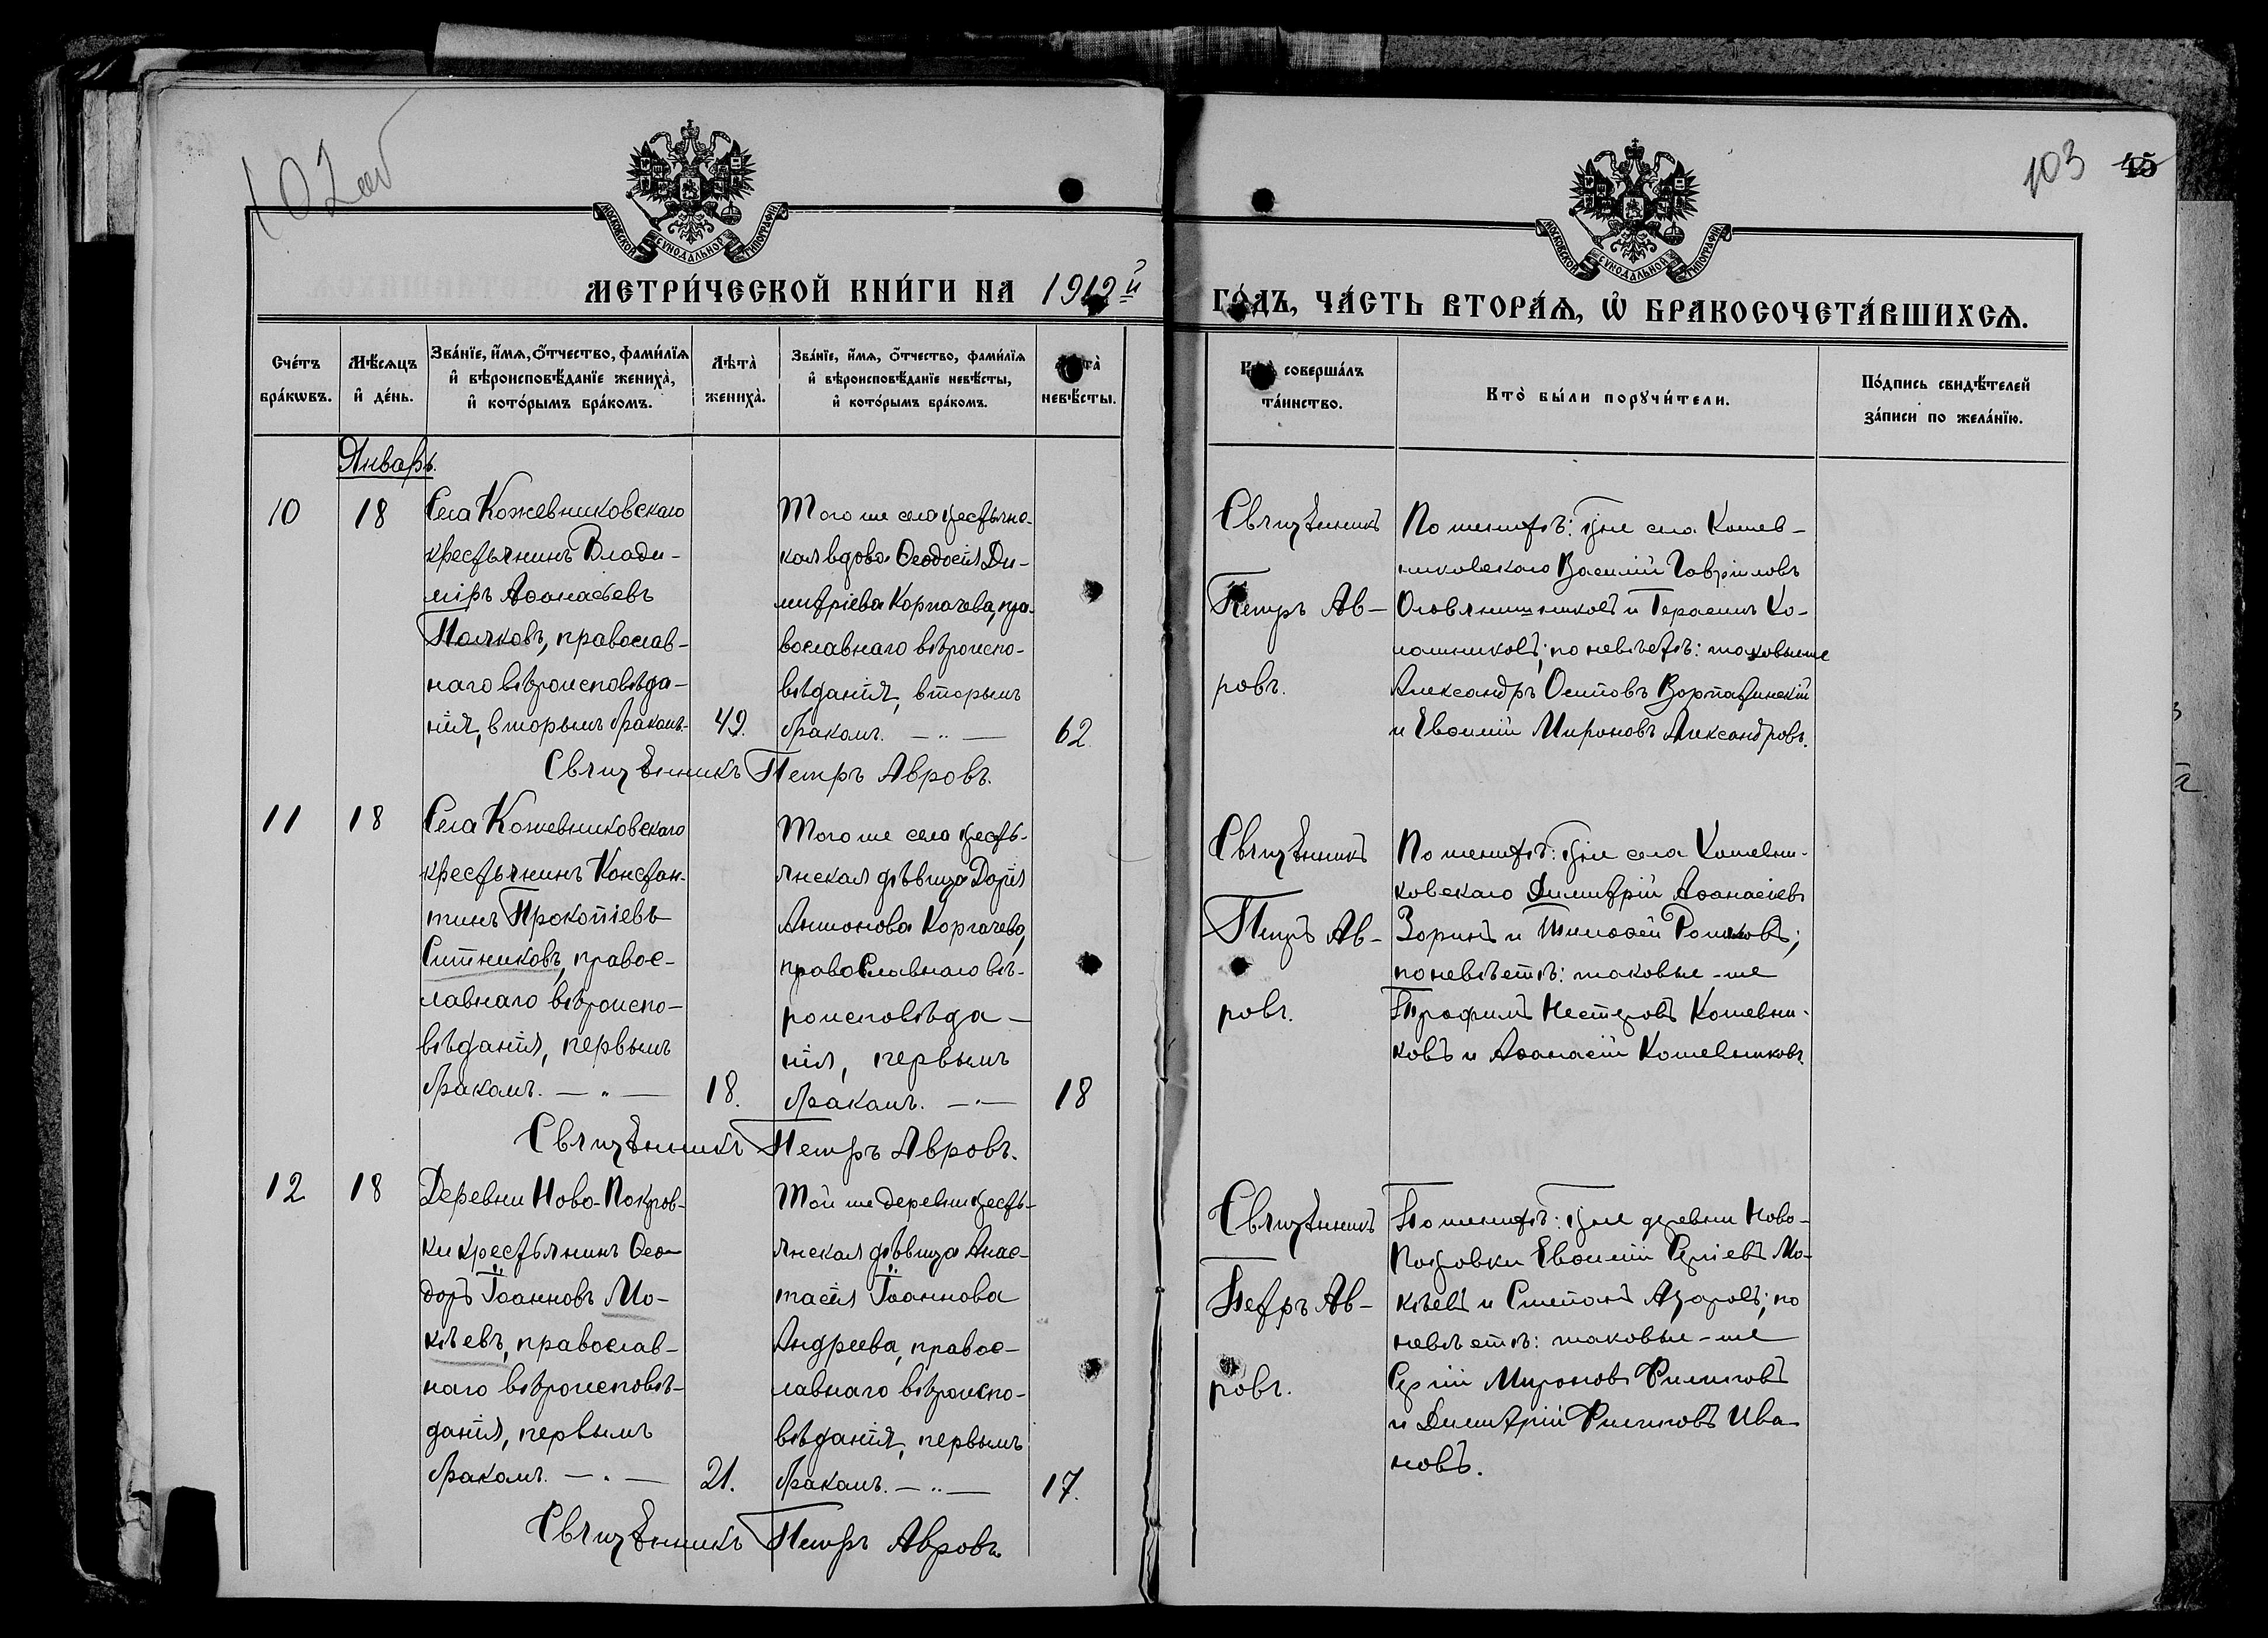 102 об
103 45
МОСКОВСКОЙ СУНОДАЛЬНОЙ ТИПОГРАФІИ
МОСКОВСКОЙ СУНОДАЛЬНОЙ ТИПОГРАФІИ
МЕТРИ́ЧЕСКОЙ КНИ́ГИ НА 1912й
ГО́ДЪ, ЧА́СТЬ ВТОРА́Я, Ѡ҆ БРАКОСОЧЕТА́ВШИХСЯ.
Сче́тъ
бра́кѡвъ.
Мѣ́сяцъ
и҆ де́нь.
Зва́нїе, и҆́мя, ѻ҆́тчество, фами́лїя
и҆ вѣроисповѣ́данїе жениха̀,
и҆ кото́рымъ бра́комъ.
Лѣта̀
жениха̀.
Зва́нїе, и҆́мя, ѻ҆́тчество, фами́лїя
и҆ вѣроисповѣ́данїе невѣ́сты,
и҆ кото́рымъ бра́комъ.
невѣ́сты.
соверша́лъ
та́инство.
Кто̀ бы́ли порꙋчи́тели.
По́дпись свидѣ́телей
за́писи по жела́нїю.
Январь.
10
18
Села Кожевниковскаго
крестьянинъ Влади-
міръ Аѳанасьевъ
Поляковъ, православ-
наго вѣроисповѣда-
нія, вторымъ бракомъ.
49.
Того же села крестьянс-
кая вдова Ѳеодосія Ди-
митріева Коргачева, пра-
вославнаго вѣроиспо-
вѣданія, вторымъ
бракомъ. — „ —
62
Священникъ
Петръ Ав-
ровъ.
По женихѣ: кр-не села Кожев-
никовскаго Василій Гавриловъ
Оловянишниковъ и Герасимъ Ко-
; по невѣстѣ: таковые же
Александръ Осиповъ
и Евѳимій Мироновъ Александровъ.
Священникъ Петръ Авровъ.
11
18
Села Кожевниковскаго
крестьянинъ Констан-
тинъ Прокопіевъ
Ситниковъ, правос-
лавнаго вѣроиспо-
вѣданія, первымъ
бракомъ. — „ —
18.
Того же села кресть-
янская дѣвица Дарія
Антонова Коргачева,
православнаго вѣ-
роисповѣда-
нія, первымъ
бракомъ. — „ —
18
Священникъ
Петръ Ав-
ровъ.
По женихѣ: кр-не села Кожевни-
ковскаго Димитрій Аѳанасіевъ
Зоринъ и Тимоѳей ;
по невѣстѣ: таковые-же
Трофимъ Нестеровъ Кожевни-
ковъ и Аѳанасій Кожевниковъ.
Священникъ Петръ Авровъ.
12
18
Деревни Ново-Покров-
ки крестьянинъ Ѳео-
доръ Іоанновъ Мо-
кѣевъ, православ-
наго вѣроисповѣ-
данія, первымъ
бракомъ. — „ —
21.
Той же деревни кресть-
янская дѣвица Анас-
тасія Іоаннова
Андреева, правос-
лавнаго вѣроиспо-
вѣданія, первымъ
бракомъ. — „ —
17.
Священникъ
Петръ Ав-
ровъ.
По женихѣ: кр-не деревни Ново-
Покровки Евѳимій Сергіевъ Мо-
кѣевъ и Степанъ Азаровъ; по
невѣстѣ: таковые-же
Сергій Мироновъ Филиповъ
и Димитрій Филиповъ Ива-
новъ.
Священникъ Петръ Авровъ.